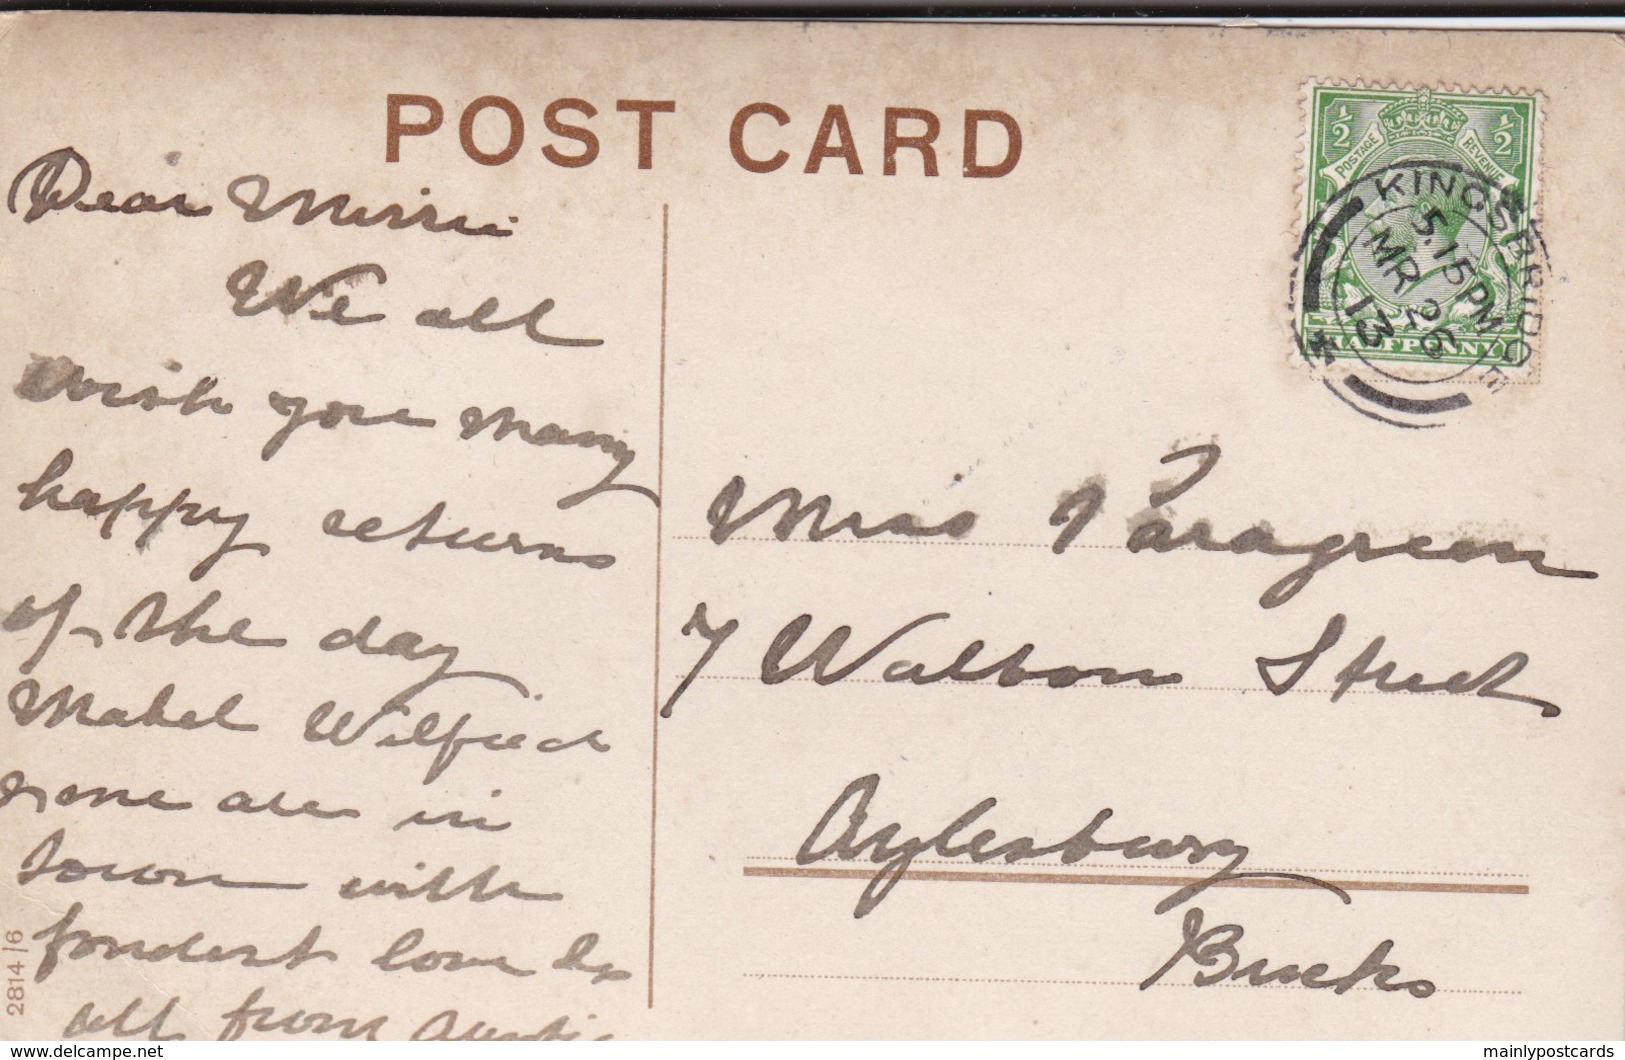 POST CARD
½ ½
POSTAGE REVENUE
HALFPENNY
KINGSBRIDGE
5.15PM
MR 26
13
Dear
We all
wish you many
happy returns
of the day
Mabel Wilfred
are in
town with
fondest love to
all from Auntie
Miss Paragreen
7 Walton Street
Aylesbury
Bucks
2814/6
delcampe.net
mainlypostcards